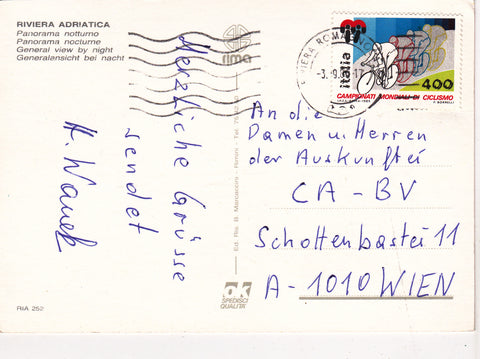 RIVIERA ADRIATICA
Panorama notturno
Panorama nocturne
General view by night
Generalansicht bei nacht
rima
Herzliche Grüsse
sendet
H. Wanek
RIA 252
ok
SPEDISCI
QUALITÀ
Italia
400
CAMPIONATI MONDIALI DI CICLISMO
An die
Damen u. Herren
der Auskunftei
CA - BV
Schottenbastei 11
A - 1010 WIEN